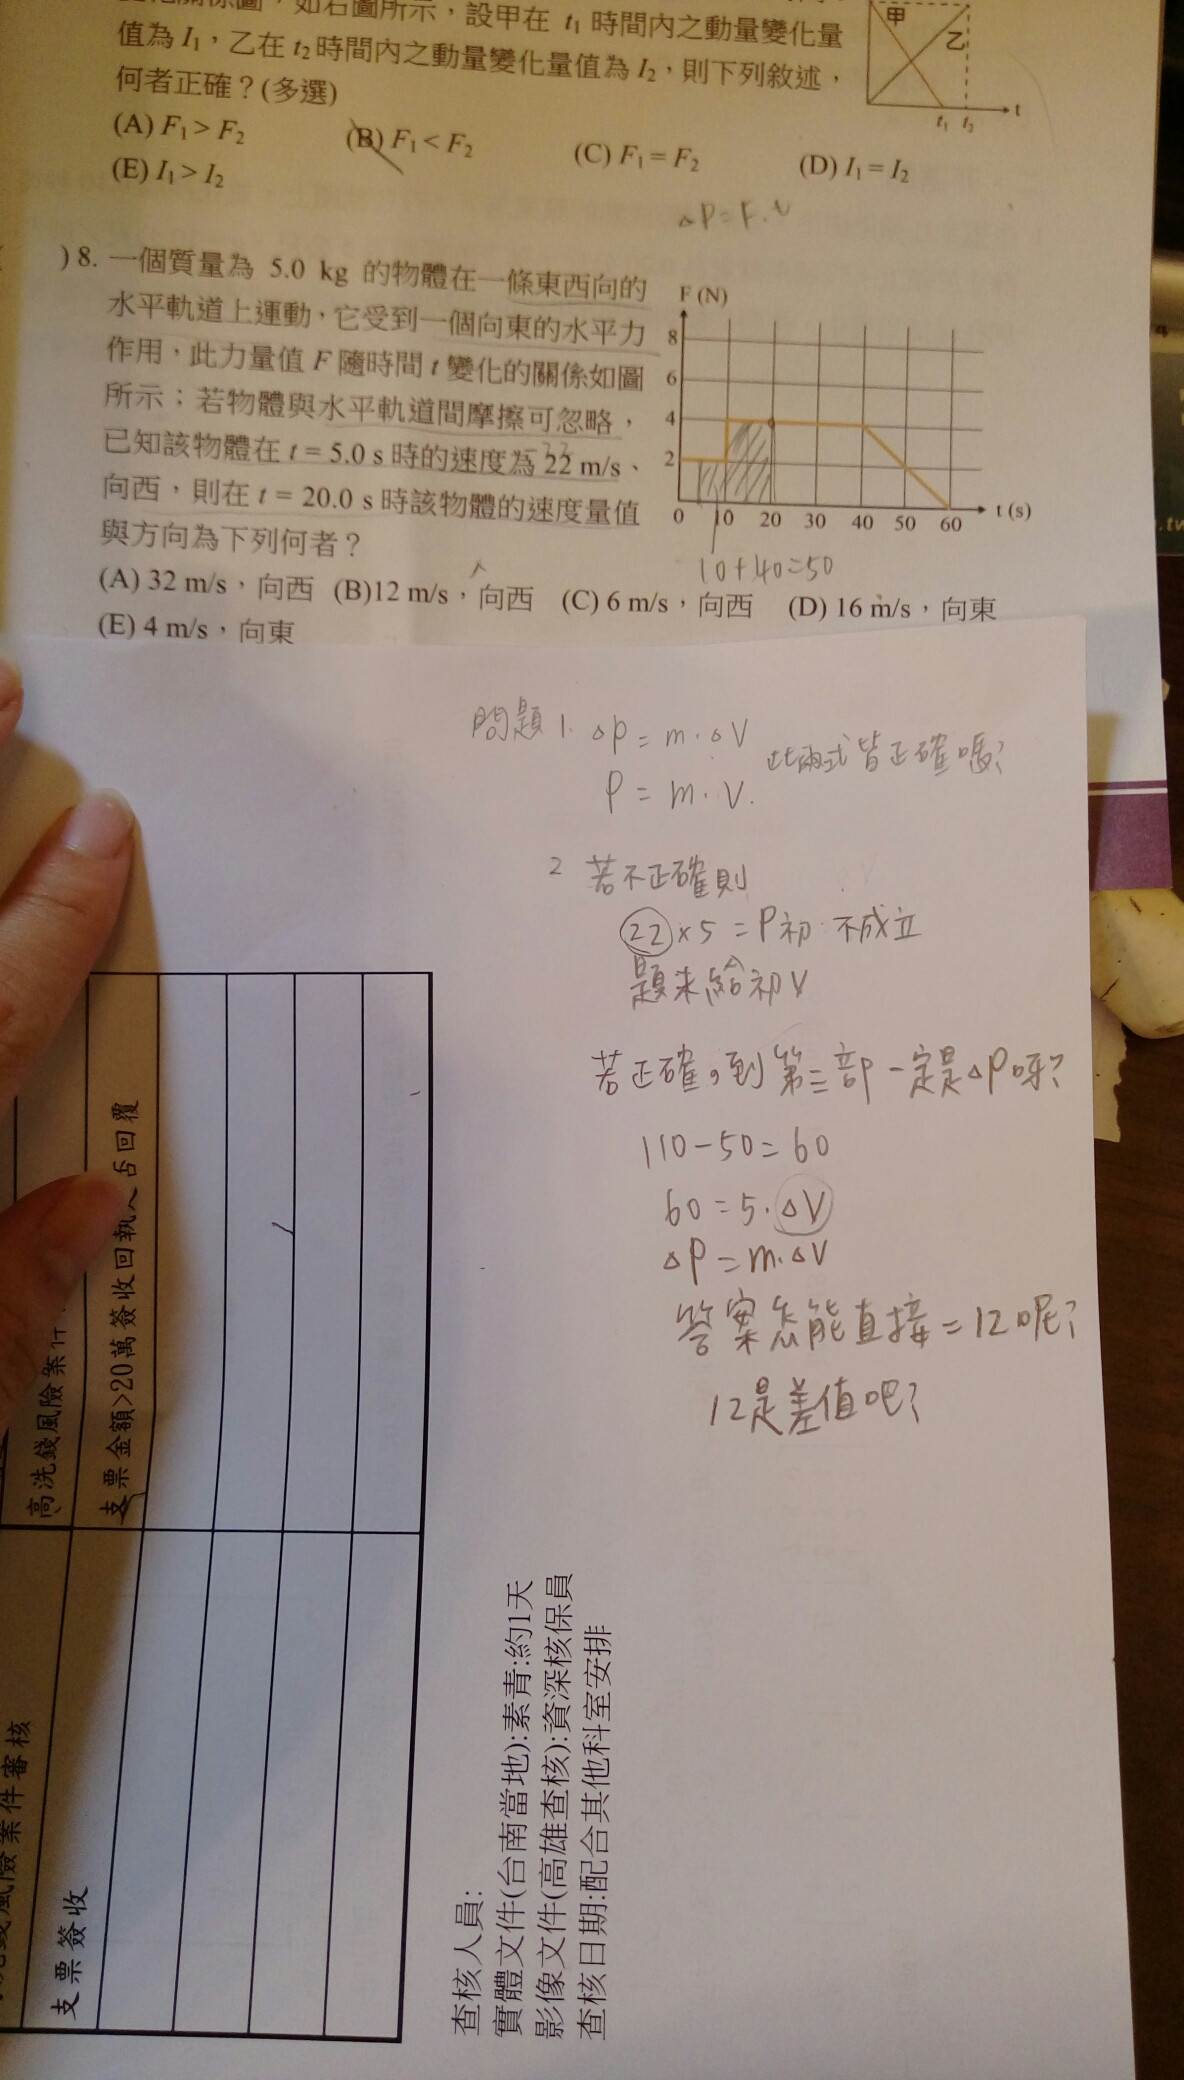 化關係圖，如右圖所示，設甲在 t₁ 時間內之動量變化量
值為 I₁，乙在 t₂ 時間內之動量變化量值為 I₂，則下列敘述，
何者正確？(多選)
(A) F₁ > F₂ (B) F₁ < F₂ (C) F₁ = F₂ (D) I₁ = I₂
(E) I₁ > I₂
甲
乙
t
t₁ t₂
△P=F.t
) 8. 一個質量為 5.0 kg 的物體在一條東西向的
水平軌道上運動，它受到一個向東的水平力
作用，此力量值 F 隨時間 t 變化的關係如圖
所示；若物體與水平軌道間摩擦可忽略，
已知該物體在 t = 5.0 s 時的速度為 22 m/s、
向西，則在 t = 20.0 s 時該物體的速度量值
與方向為下列何者？
(A) 32 m/s，向西 (B)12 m/s，向西 (C) 6 m/s，向西 (D) 16 m/s，向東
(E) 4 m/s，向東
F (N)
8
6
4
2
0 10 20 30 40 50 60 t (s)
10+40=50
問題 1. △P = m.△V
P = m.V.
此兩式皆正確嗎?
2 若不正確則
22×5 = P初 不成立
題未給初V
若正確,到第三部一定是△P呀?
110-50=60
60=5.△V
△P=m.△V
答案怎能直接=12呢?
12是差值吧?
支票金額>20萬簽收回執人否回覆
支票簽收
查核人員:
實體文件(台南當地):素青:約1天
影像文件(高雄查核):資深核保員
查核日期:配合其他科室安排